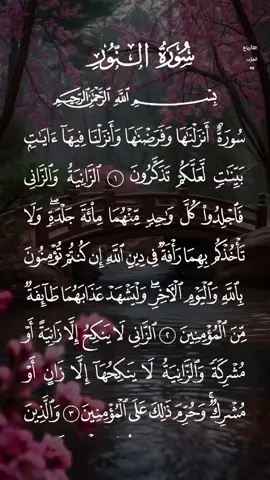 سُورَةُ النُّورِ
بِسْمِ اللَّهِ الرَّحْمَٰنِ الرَّحِيمِ
سُورَةٌ أَنزَلْنَٰهَا وَفَرَضْنَٰهَا وَأَنزَلْنَا فِيهَآ ءَايَٰتٍۭ
بَيِّنَٰتٍ لَّعَلَّكُمْ تَذَكَّرُونَ ١ ٱلزَّانِيَةُ وَٱلزَّانِى
فَٱجْلِدُوا۟ كُلَّ وَٰحِدٍ مِّنْهُمَا مِا۟ئَةَ جَلْدَةٍ ۖ وَلَا
تَأْخُذْكُم بِهِمَا رَأْفَةٌ فِى دِينِ ٱللَّهِ إِن كُنتُمْ تُؤْمِنُونَ
بِٱللَّهِ وَٱلْيَوْمِ ٱلْءَاخِرِ ۖ وَلْيَشْهَدْ عَذَابَهُمَا طَآئِفَةٌ
مِّنَ ٱلْمُؤْمِنِينَ ٢ ٱلزَّانِى لَا يَنكِحُ إِلَّا زَانِيَةً أَوْ
مُشْرِكَةً وَٱلزَّانِيَةُ لَا يَنكِحُهَآ إِلَّا زَانٍ أَوْ
مُشْرِكٌ ۚ وَحُرِّمَ ذَٰلِكَ عَلَى ٱلْمُؤْمِنِينَ ٣ وَٱلَّذِينَ